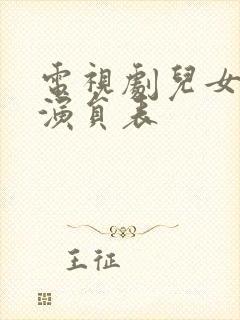 電視劇兒女
演員表
王征